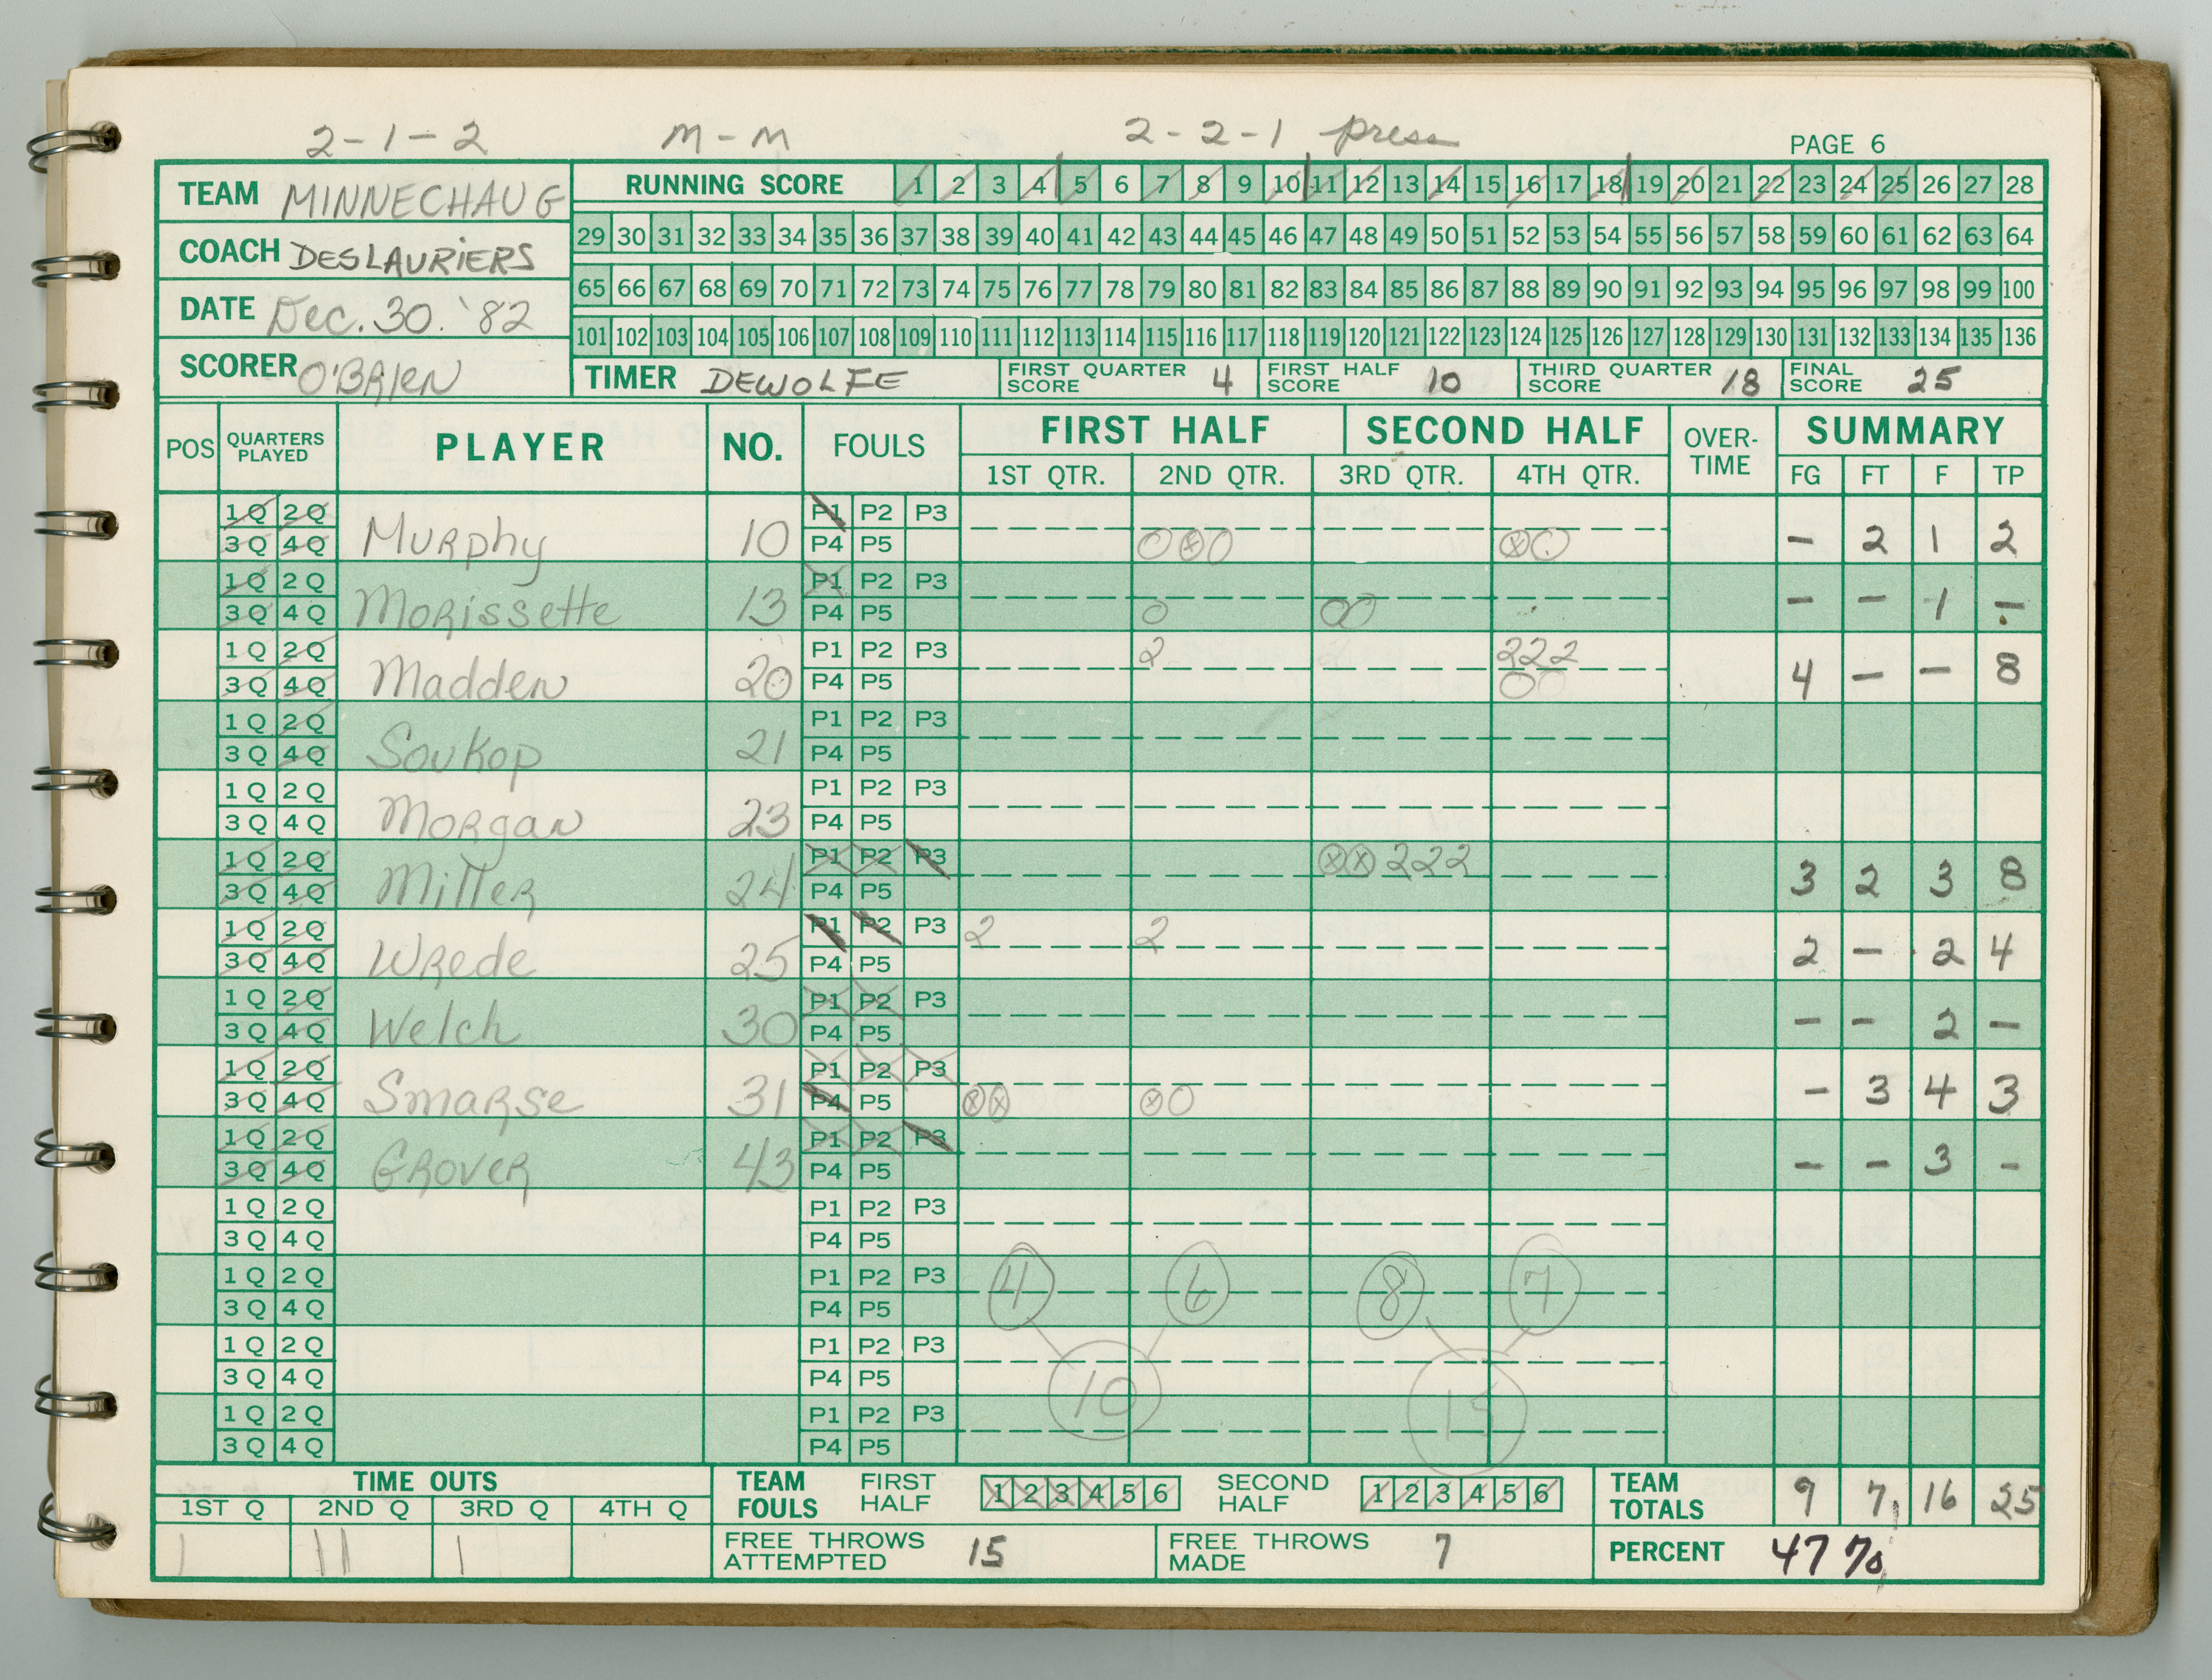 2-1-2 M-M 2-2-1 press
PAGE 6
TEAM MINNECHAUG
RUNNING SCORE 1 2 3 4 5 6 7 8 9 10 11 12 13 14 15 16 17 18 19 20 21 22 23 24 25 26 27 28
COACH DESLAURIERS
29 30 31 32 33 34 35 36 37 38 39 40 41 42 43 44 45 46 47 48 49 50 51 52 53 54 55 56 57 58 59 60 61 62 63 64
DATE Dec. 30. '82
65 66 67 68 69 70 71 72 73 74 75 76 77 78 79 80 81 82 83 84 85 86 87 88 89 90 91 92 93 94 95 96 97 98 99 100
101 102 103 104 105 106 107 108 109 110 111 112 113 114 115 116 117 118 119 120 121 122 123 124 125 126 127 128 129 130 131 132 133 134 135 136
SCORER O'BRIEN
TIMER DEWOLFE
FIRST QUARTER SCORE 4
FIRST HALF SCORE 10
THIRD QUARTER SCORE 18
FINAL SCORE 25
POS QUARTERS PLAYED PLAYER NO. FOULS FIRST HALF SECOND HALF OVER-TIME SUMMARY
1ST QTR. 2ND QTR. 3RD QTR. 4TH QTR. FG FT F TP
1Q 2Q P1 P2 P3
3Q 4Q Murphy 10 P4 P5 O ⊗ O ⊗ O - 2 1 2
1Q 2Q P1 P2 P3
3Q 4Q Morissette 13 P4 P5 O O O - - 1 -
1Q 2Q P1 P2 P3 2 222
3Q 4Q Madden 20 P4 P5 O O 4 - - 8
1Q 2Q P1 P2 P3
3Q 4Q Soukop 21 P4 P5
1Q 2Q P1 P2 P3
3Q 4Q Morgan 23 P4 P5
1Q 2Q P1 P2 P3 ⊗ ⊗ 222
3Q 4Q Miller 24 P4 P5 3 2 3 8
1Q 2Q P1 P2 P3 2 2
3Q 4Q Wrede 25 P4 P5 2 - 2 4
1Q 2Q P1 P2 P3
3Q 4Q Welch 30 P4 P5 - - 2 -
1Q 2Q P1 P2 P3
3Q 4Q Smarse 31 P4 P5 ⊗ ⊗ ⊗ O - 3 4 3
1Q 2Q P1 P2 P3
3Q 4Q Grover 43 P4 P5 - - 3 -
1Q 2Q P1 P2 P3
3Q 4Q P4 P5
1Q 2Q P1 P2 P3 4 6 8 7
3Q 4Q P4 P5
1Q 2Q P1 P2 P3
3Q 4Q P4 P5 10 15
1Q 2Q P1 P2 P3
3Q 4Q P4 P5
TIME OUTS
1ST Q 2ND Q 3RD Q 4TH Q
| || |
TEAM FOULS FIRST HALF 1 2 3 4 5 6 SECOND HALF 1 2 3 4 5 6
TEAM TOTALS 9 7 16 25
FREE THROWS ATTEMPTED 15
FREE THROWS MADE 7
PERCENT 47%